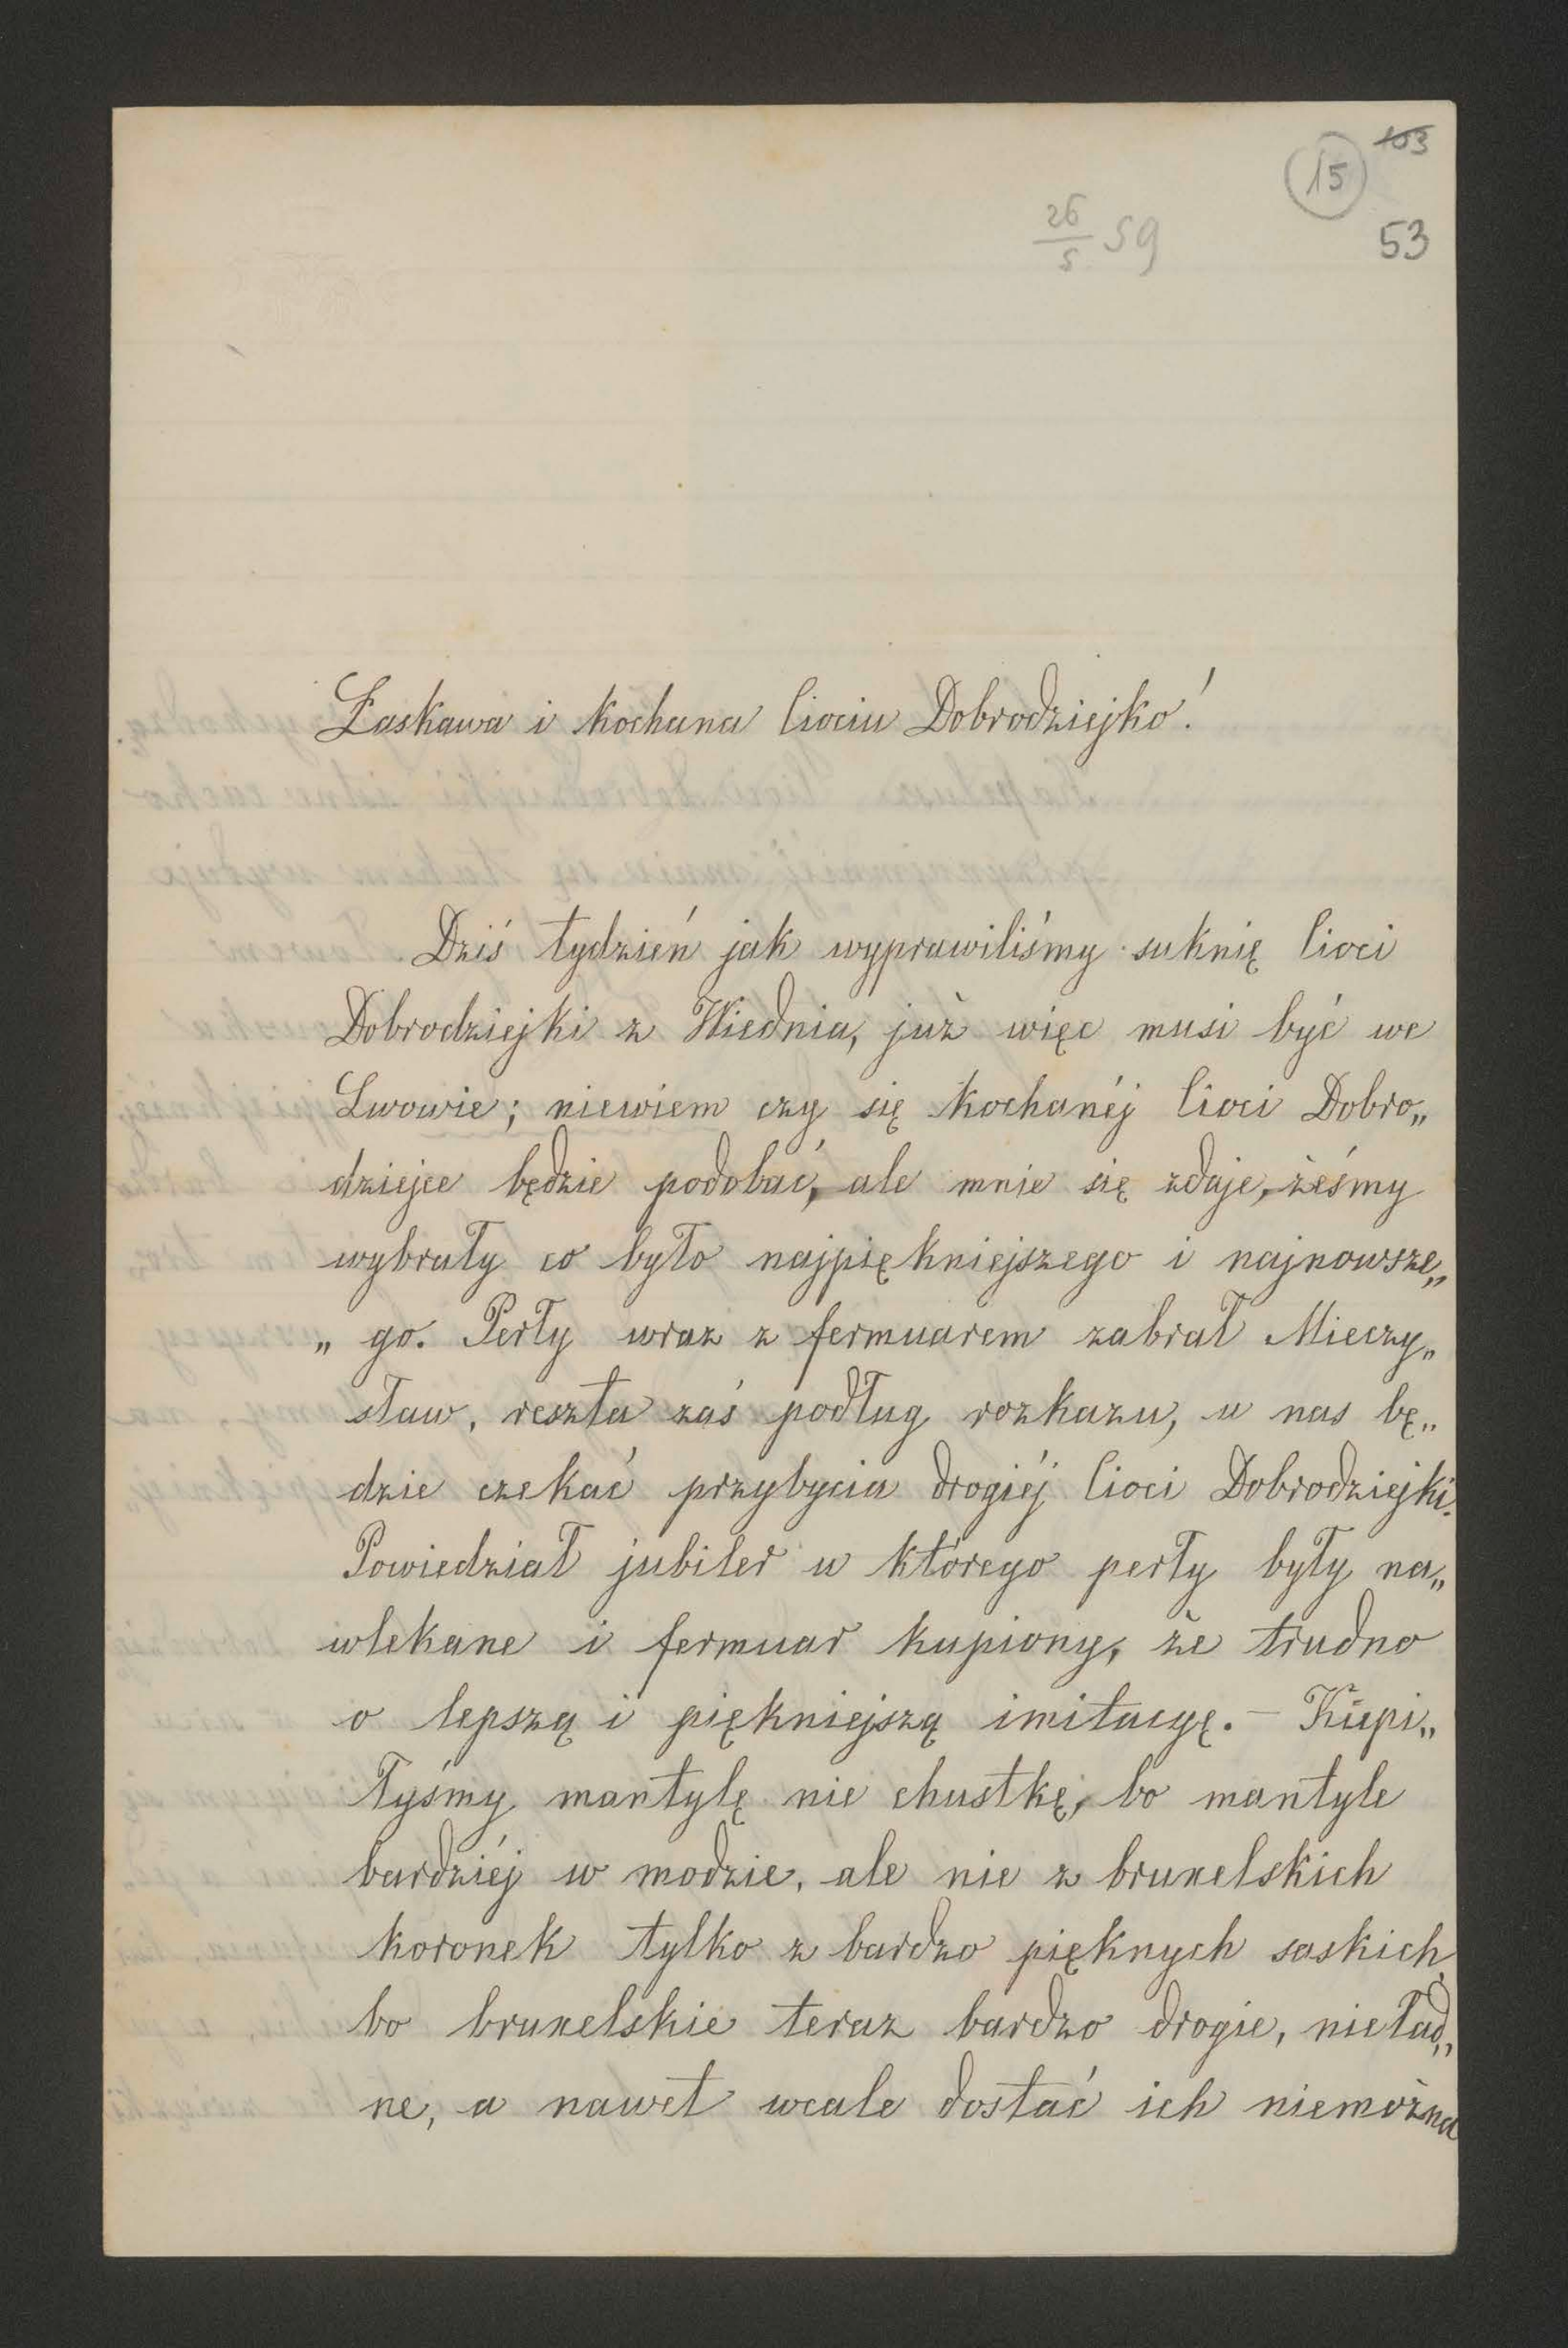 103
15
26/5 59
53
Łaskawa i kochana Ciociu Dobrodziejko!
Dziś tydzień jak wyprawiliśmy suknię Cioci
Dobrodziejki z Wiednia, już więc musi być we
Lwowie; niewiem czy się kochanéj Cioci Dobro„
dziejce będzie podobać, ale mnie się zdaje, żeśmy
wybrały co było najpiękniejszego i najnowsze„
„ go. Perły wraz z fermuarem zabrał Mieczy„
sław, reszta zaś podług rozkazu, u nas bę„
dzie czekać przybycia drogiéj Cioci Dobrodziejki.
Powiedział jubiler u którego perły były na„
wlekane i fermuar kupiony, że trudno
o lepszą i piękniejszą imitacyę. – Kupi„
łyśmy mantylę nie chustkę, bo mantyle
bardziéj w modzie, ale nie z bruxelskich
koronek tylko z bardzo pięknych saskich,
bo bruxelskie teraz bardzo drogie, nieład„
ne, a nawet wcale dostać ich niemożna